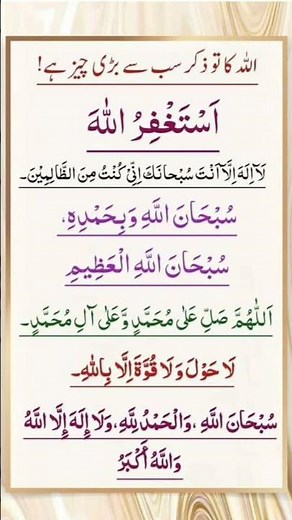 اللہ کا تو ذکر سب سے بڑی چیز ہے!
اَسْتَغْفِرُ اللّٰهَ
لَآ اِلٰهَ اِلَّآ اَنْتَ سُبْحَانَكَ اِنِّیْ كُنْتُ مِنَ الظَّالِمِيْنَ۔
سُبْحَانَ اللَّهِ وَبِحَمْدِهِ،
سُبْحَانَ اللَّهِ الْعَظِيمِ
اَللّٰهُمَّ صَلِّ عَلٰى مُحَمَّدٍ وَّعَلٰى آلِ مُحَمَّدٍ۔
لَا حَوْلَ وَلَا قُوَّةَ اِلَّا بِاللّٰهِ۔
سُبْحَانَ اللَّهِ، وَالْحَمْدُ لِلَّهِ، وَلَا إِلَهَ إِلَّا اللَّهُ
وَاللَّهُ أَكْبَرُ